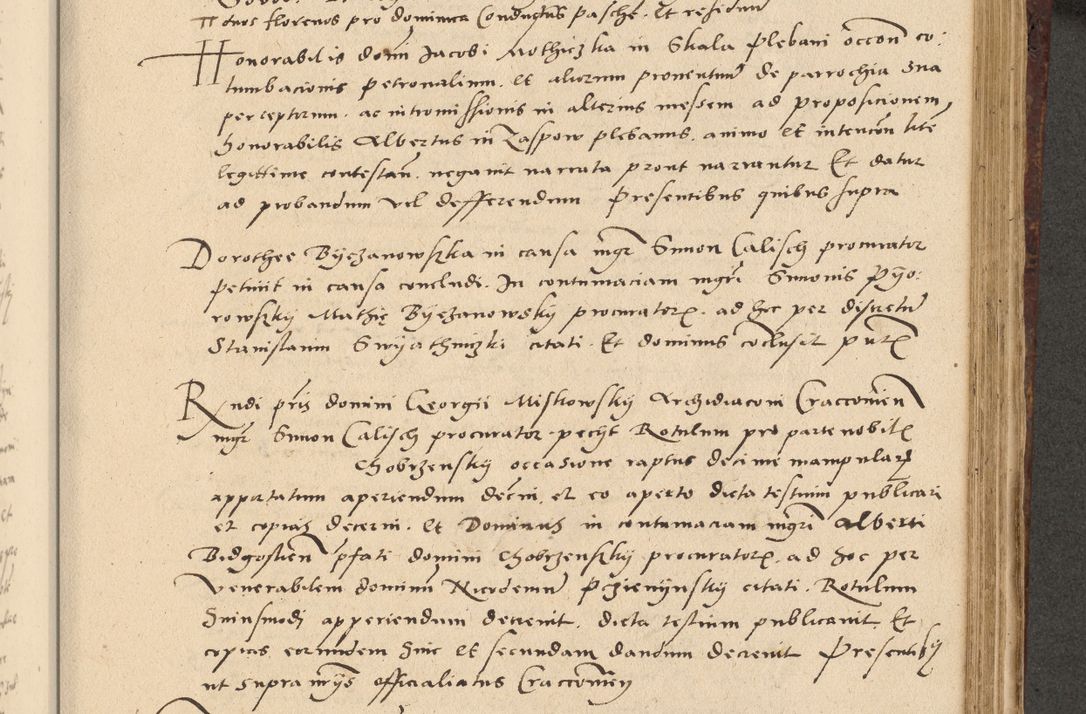 duos florenos pro dominica Conductus pasche. Et residuu
Honorabilis domi Jacobi Mothiczka in Skala plebani occon co:
tumbacionis petronalium. et aliorum proventuu de parrochia sua
perceptorum. ac intromissionis in alterius messem ad proposicionem
honorabilis Albertus in Zaspow plebanus. animo et intencion lite
legittime contestan. negavit narrata prout narrantur Et datur
ad probandum vel defferendum Presentibus quibus supra
Dorothee Byezanowska in causa mgr Simon Calisch procurator
petiit in causa concludi. In contumaciam mgri Simonis Pyo:
rowsky Mathie Byezanowsky procurator. ad hoc per discretu
Stanislaum Swyathniczki citati. Et dominus coclusit put
Rndi pris domini Georgii Miskowsky Archidiaconi Craccovien
mgr Simon Calisch procurator pecyt Rotulum pro parte nobil
Chobrzensky occasione raptus decime manipular
apportatum aperiendum decni. et eo aperto dicta testium publicari
et copias decerni. Et Dominus in contumaciam mgri Alberti
Bidgostien pfati domini Chobrzensky procurator. ad hoc per
venerabilem dominu Nicodemu Przienynsky citati. Rotulum
huiusmodi apperiendum decrevit. dicta testium publicavit. Et
copias eorundem hinc et secundam dandum decrevit Presentib
ut supra in officialiatus Craccovien